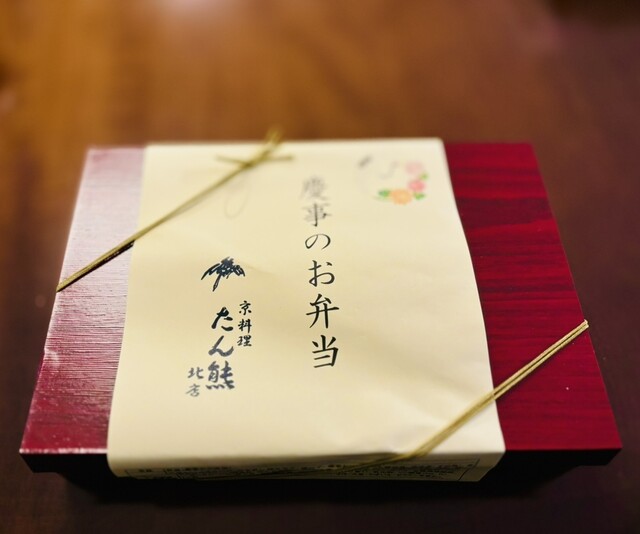 慶事のお弁当
京料理
たん熊
北店